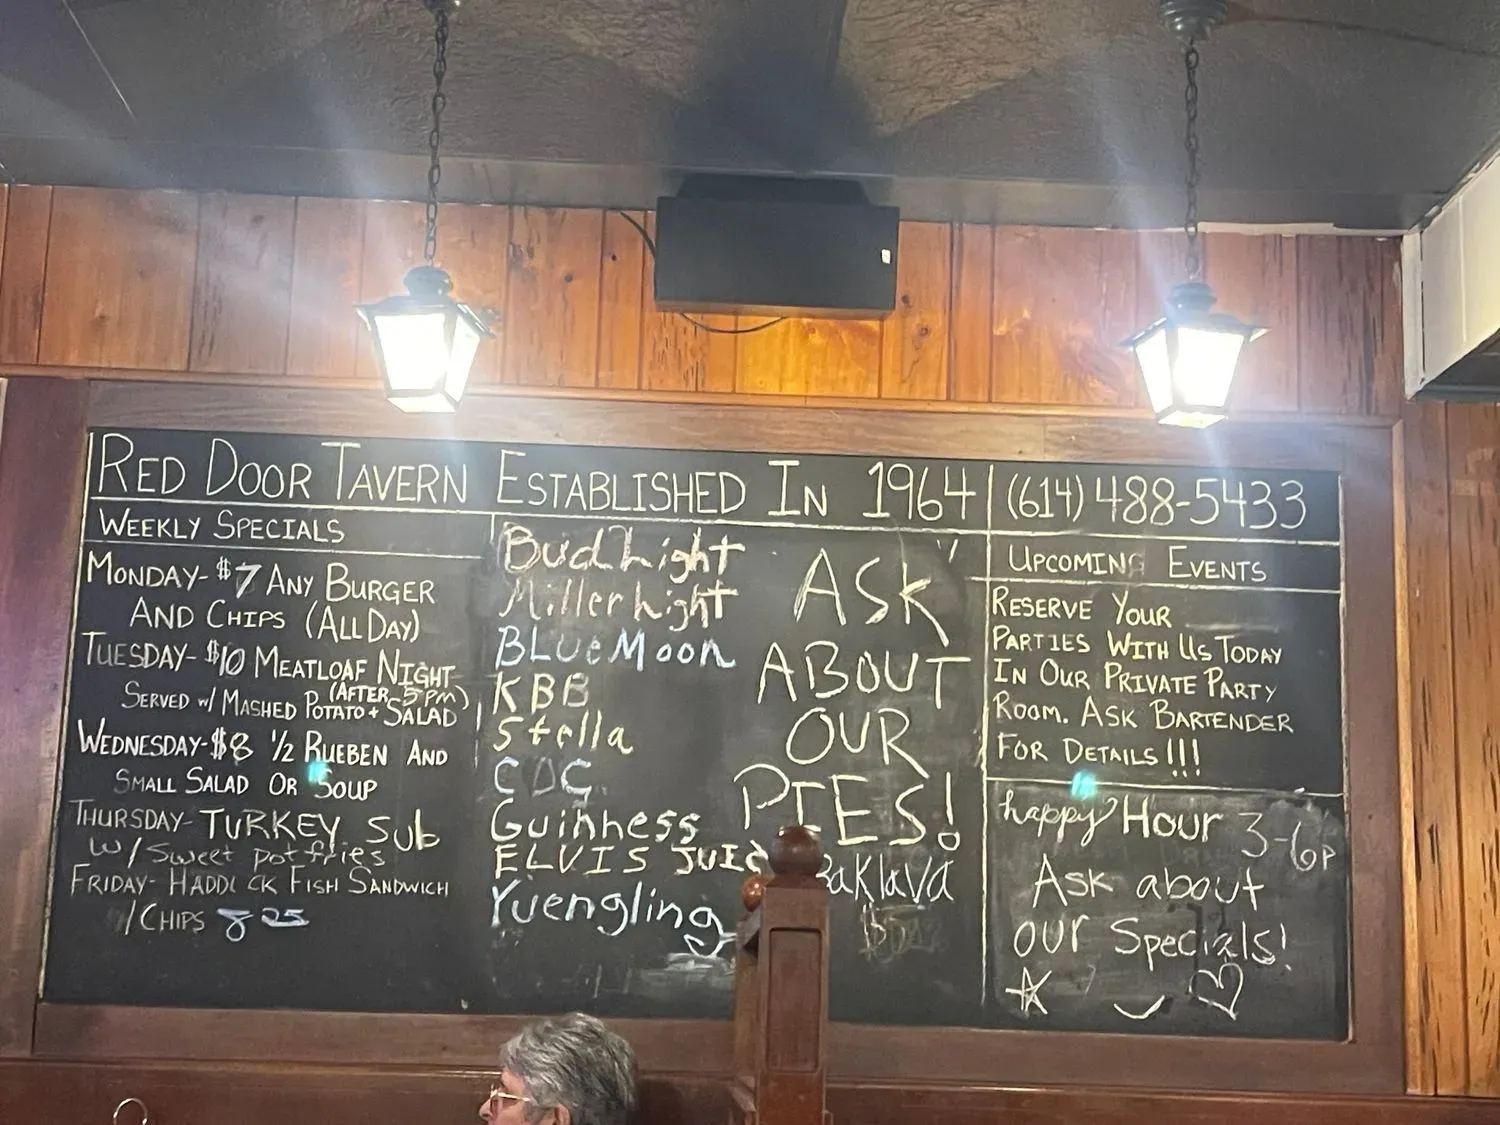 RED DOOR TAVERN ESTABLISHED IN 1964
(614) 488-5433
WEEKLY SPECIALS
MONDAY- $7 ANY BURGER
AND CHIPS (ALL DAY)
TUESDAY- $10 MEATLOAF NIGHT
(AFTER 5 PM)
SERVED w/ MASHED POTATO + SALAD
WEDNESDAY- $8 1/2 RUEBEN AND
SMALL SALAD OR SOUP
THURSDAY- TURKEY Sub
w/ Sweet pot fries
FRIDAY- HADDOCK FISH SANDWICH
/CHIPS 8 25
Bud Light
Miller Light
BLUe Moon
KBB
Stella
Guinness
ELVIS JUIC
Yuengling
ASK
ABOUT
OUR
PIES!
BaKlaVa
UPCOMING EVENTS
RESERVE YOUR
PARTIES WITH US TODAY
IN OUR PRIVATE PARTY
ROOM. ASK BARTENDER
FOR DETAILS!!!
happy Hour 3-6P
Ask about
our Specials!